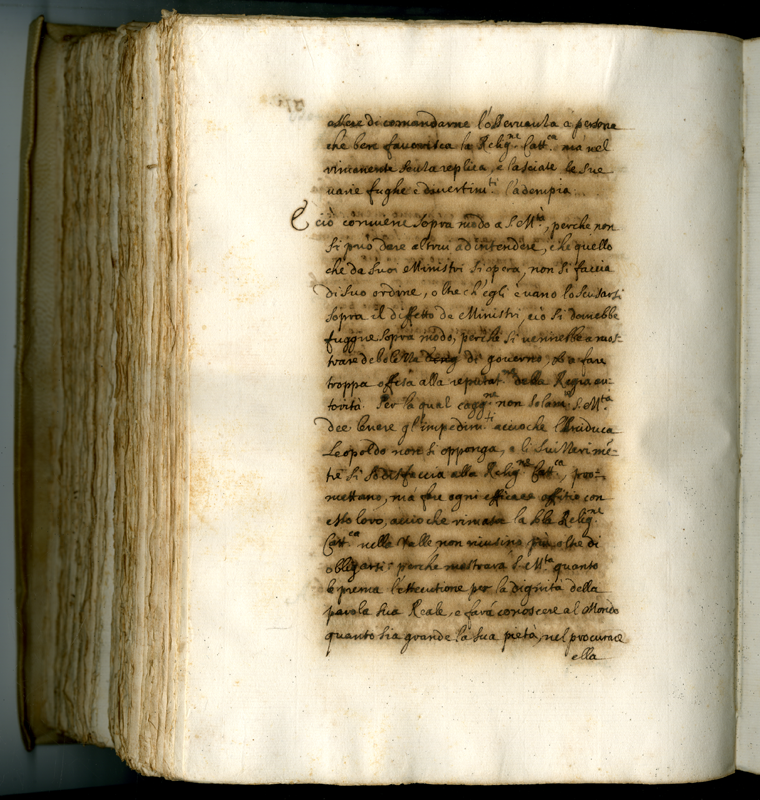 essere di comandarne l'osservanza à persona
che bene favorisca la Relig.ne Catt.ca ma nel
rimanente senza replica, e lasciate le sue
varie fughe e divertim.ti l'adempia.
E ciò conviene sopra modo a S. M.tà, perche non
si può dare altrui ad intendere, che quello
che da suoi Ministri si opera, non si faccia
di suo ordine, oltre ch'egli è vano lo scusarsi
sopra il difetto de Ministri, ciò si dovrebbe
fuggire sopra modo, perche si verrebbe a mos-
trare debolezza di governo, et a fare
troppa offesa alla reputat.ne della Regia au-
torità. Per la qual cagg.ne non solam.te S. M.tà
dee levere gl'impedim.ti accioche l'Arciduca
Leopoldo non si opponga, e li Suizzeri men-
tre si sodisfaccia alla Relig.ne Catt.ca, pro-
mettano, ma fare ogni efficace offitio con
esso loro, accioche rimasta la sola Relig.ne
Catt.ca nella Valle non ricusino più oltre di
obligarsi: perche mostrarà S. M.tà quanto
le prema l'essecutione per la dignità della
parola sua Reale, e farà conoscere al Mondo
quanto sia grande la sua pietà, nel procurare
ella